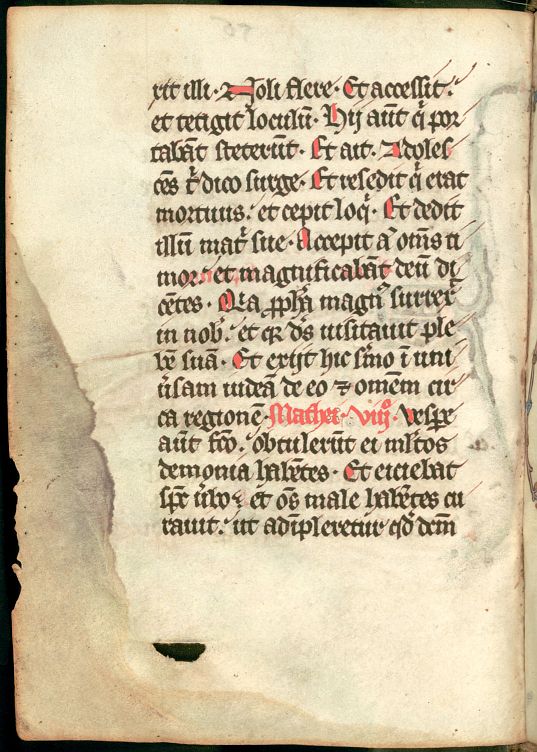 rit illi · Noli flere · Et accessit ·
et tetigit loculū · Hij aūt q̇ por
tabāt steterūt · Et ait · Adoles
cēs t̉ dico surge · Et resedit q̇ erat
mortuus · et cepit loq̇ · Et dedit
illū mat̉ sue · Accepit aͧ om̄s ti
mor · et magnificabāt deū di
cētes · Qͥa ꝓpha magn᾽ surrex̉
in nob̉ · et qꝛ dn̄s uisitauit ple
bē suā · Et exijt hic s̉mo ī uni
u̓sam iudeā de eo ⁊ omēm cir
ca regionē · Mathei · viijͦ · Vesꝑe
aūt fc̄o · obtulerūt ei ml̉tos
demonia hab̄ētes · Et eiciebat
sp̄c u̓bo · et om̄s male hab̄ētes cu
rauit · ut adīpleretur qd̓ dcm̄